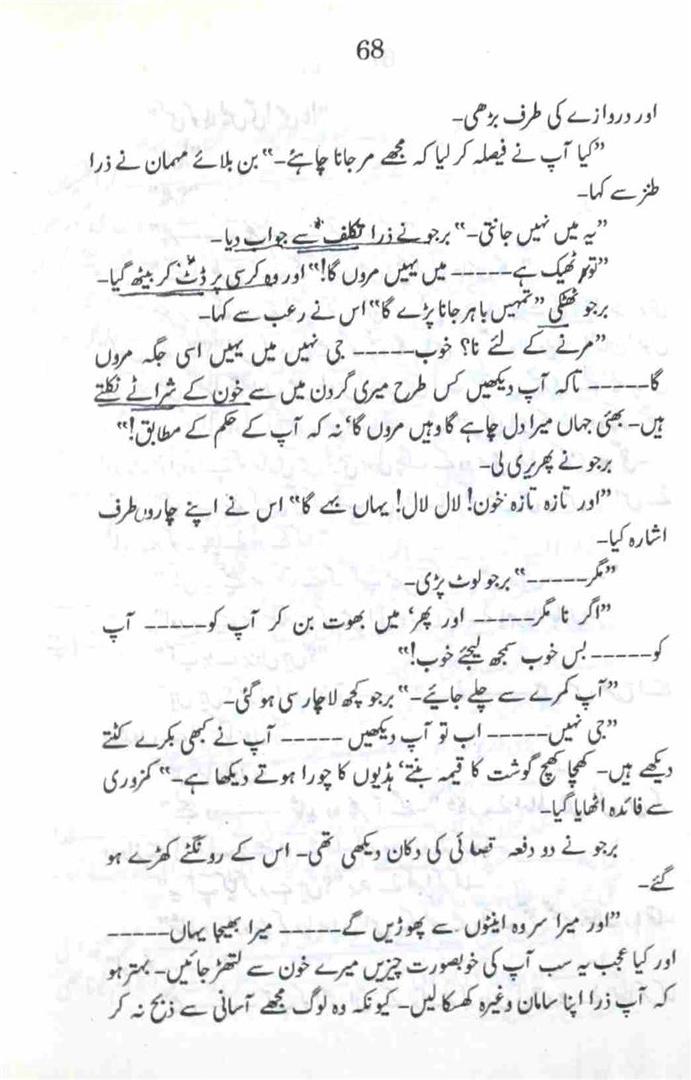 68
اور دروازے کی طرف بڑھی۔
”کیا آپ نے فیصلہ کر لیا کہ مجھے مر جانا چاہئے۔“ بن بلائے مہمان نے ذرا
طنز سے کہا۔
”یہ میں نہیں جانتی۔“ برجو نے ذرا تکلف سے جواب دیا۔
”تو ٹھیک ہے۔۔۔۔۔ میں یہیں مروں گا!“ اور وہ کرسی پر ڈٹ کر بیٹھ گیا۔
برجو ٹھٹکی ”تمہیں باہر جانا پڑے گا“ اس نے رعب سے کہا۔
”مرنے کے لئے نا؟ خوب۔۔۔۔۔ جی نہیں میں یہیں اسی جگہ مروں
گا۔۔۔۔۔ تاکہ آپ دیکھیں کس طرح میری گردن میں سے خون کے شراٹے نکلتے
ہیں۔ بھئی جہاں میرا دل چاہے گا وہیں مروں گا‘ نہ کہ آپ کے حکم کے مطابق!“
برجو نے پھریری لی۔
”اور تازہ تازہ خون! لال لال! یہاں بہے گا“ اس نے اپنے چاروں طرف
اشارہ کیا۔
”مگر۔۔۔۔۔“ برجو لوٹ پڑی۔
”اگر نا مگر۔۔۔۔۔ اور پھر‘ میں بھوت بن کر آپ کو۔۔۔۔۔ آپ
کو۔۔۔۔۔ بس خوب سمجھ لیجئے خوب!“
”آپ کمرے سے چلے جائیے۔“ برجو کچھ لاچار سی ہو گئی۔
”جی نہیں۔۔۔۔۔ اب تو آپ دیکھیں ۔۔۔۔۔ آپ نے کبھی بکرے کٹتے
دیکھے ہیں۔ کھچا کھچ گوشت کا قیمہ بنتے‘ ہڈیوں کا چورا ہوتے دیکھا ہے۔“ کمزوری
سے فائدہ اٹھایا گیا۔
برجو نے دو دفعہ قصائی کی دکان دیکھی تھی۔ اس کے رونگٹے کھڑے ہو
گئے۔
”اور میرا سر وہ اینٹوں سے پھوڑیں گے۔۔۔۔۔ میرا بھیجا یہاں۔۔۔۔۔
اور کیا عجب یہ سب آپ کی خوبصورت چیزیں میرے خون سے لتھڑ جائیں۔ بہتر ہو
کہ آپ ذرا اپنا سامان وغیرہ کھسکا لیں۔ کیونکہ وہ لوگ مجھے آسانی سے ذبح نہ کر